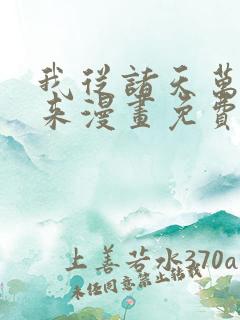 我从諸天萬
来漫畫免費
上善若水370a
未经同意禁止转载